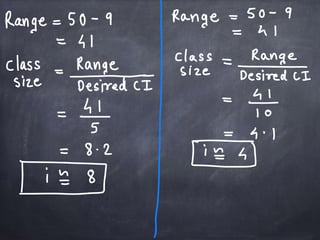 Range = 50 - 9
= 41
Class size = Range / Desired CI
= 41 / 5
= 8.2
i ≅ 8
Range = 50 - 9
= 41
Class size = Range / Desired CI
= 41 / 10
= 4.1
i ≅ 4